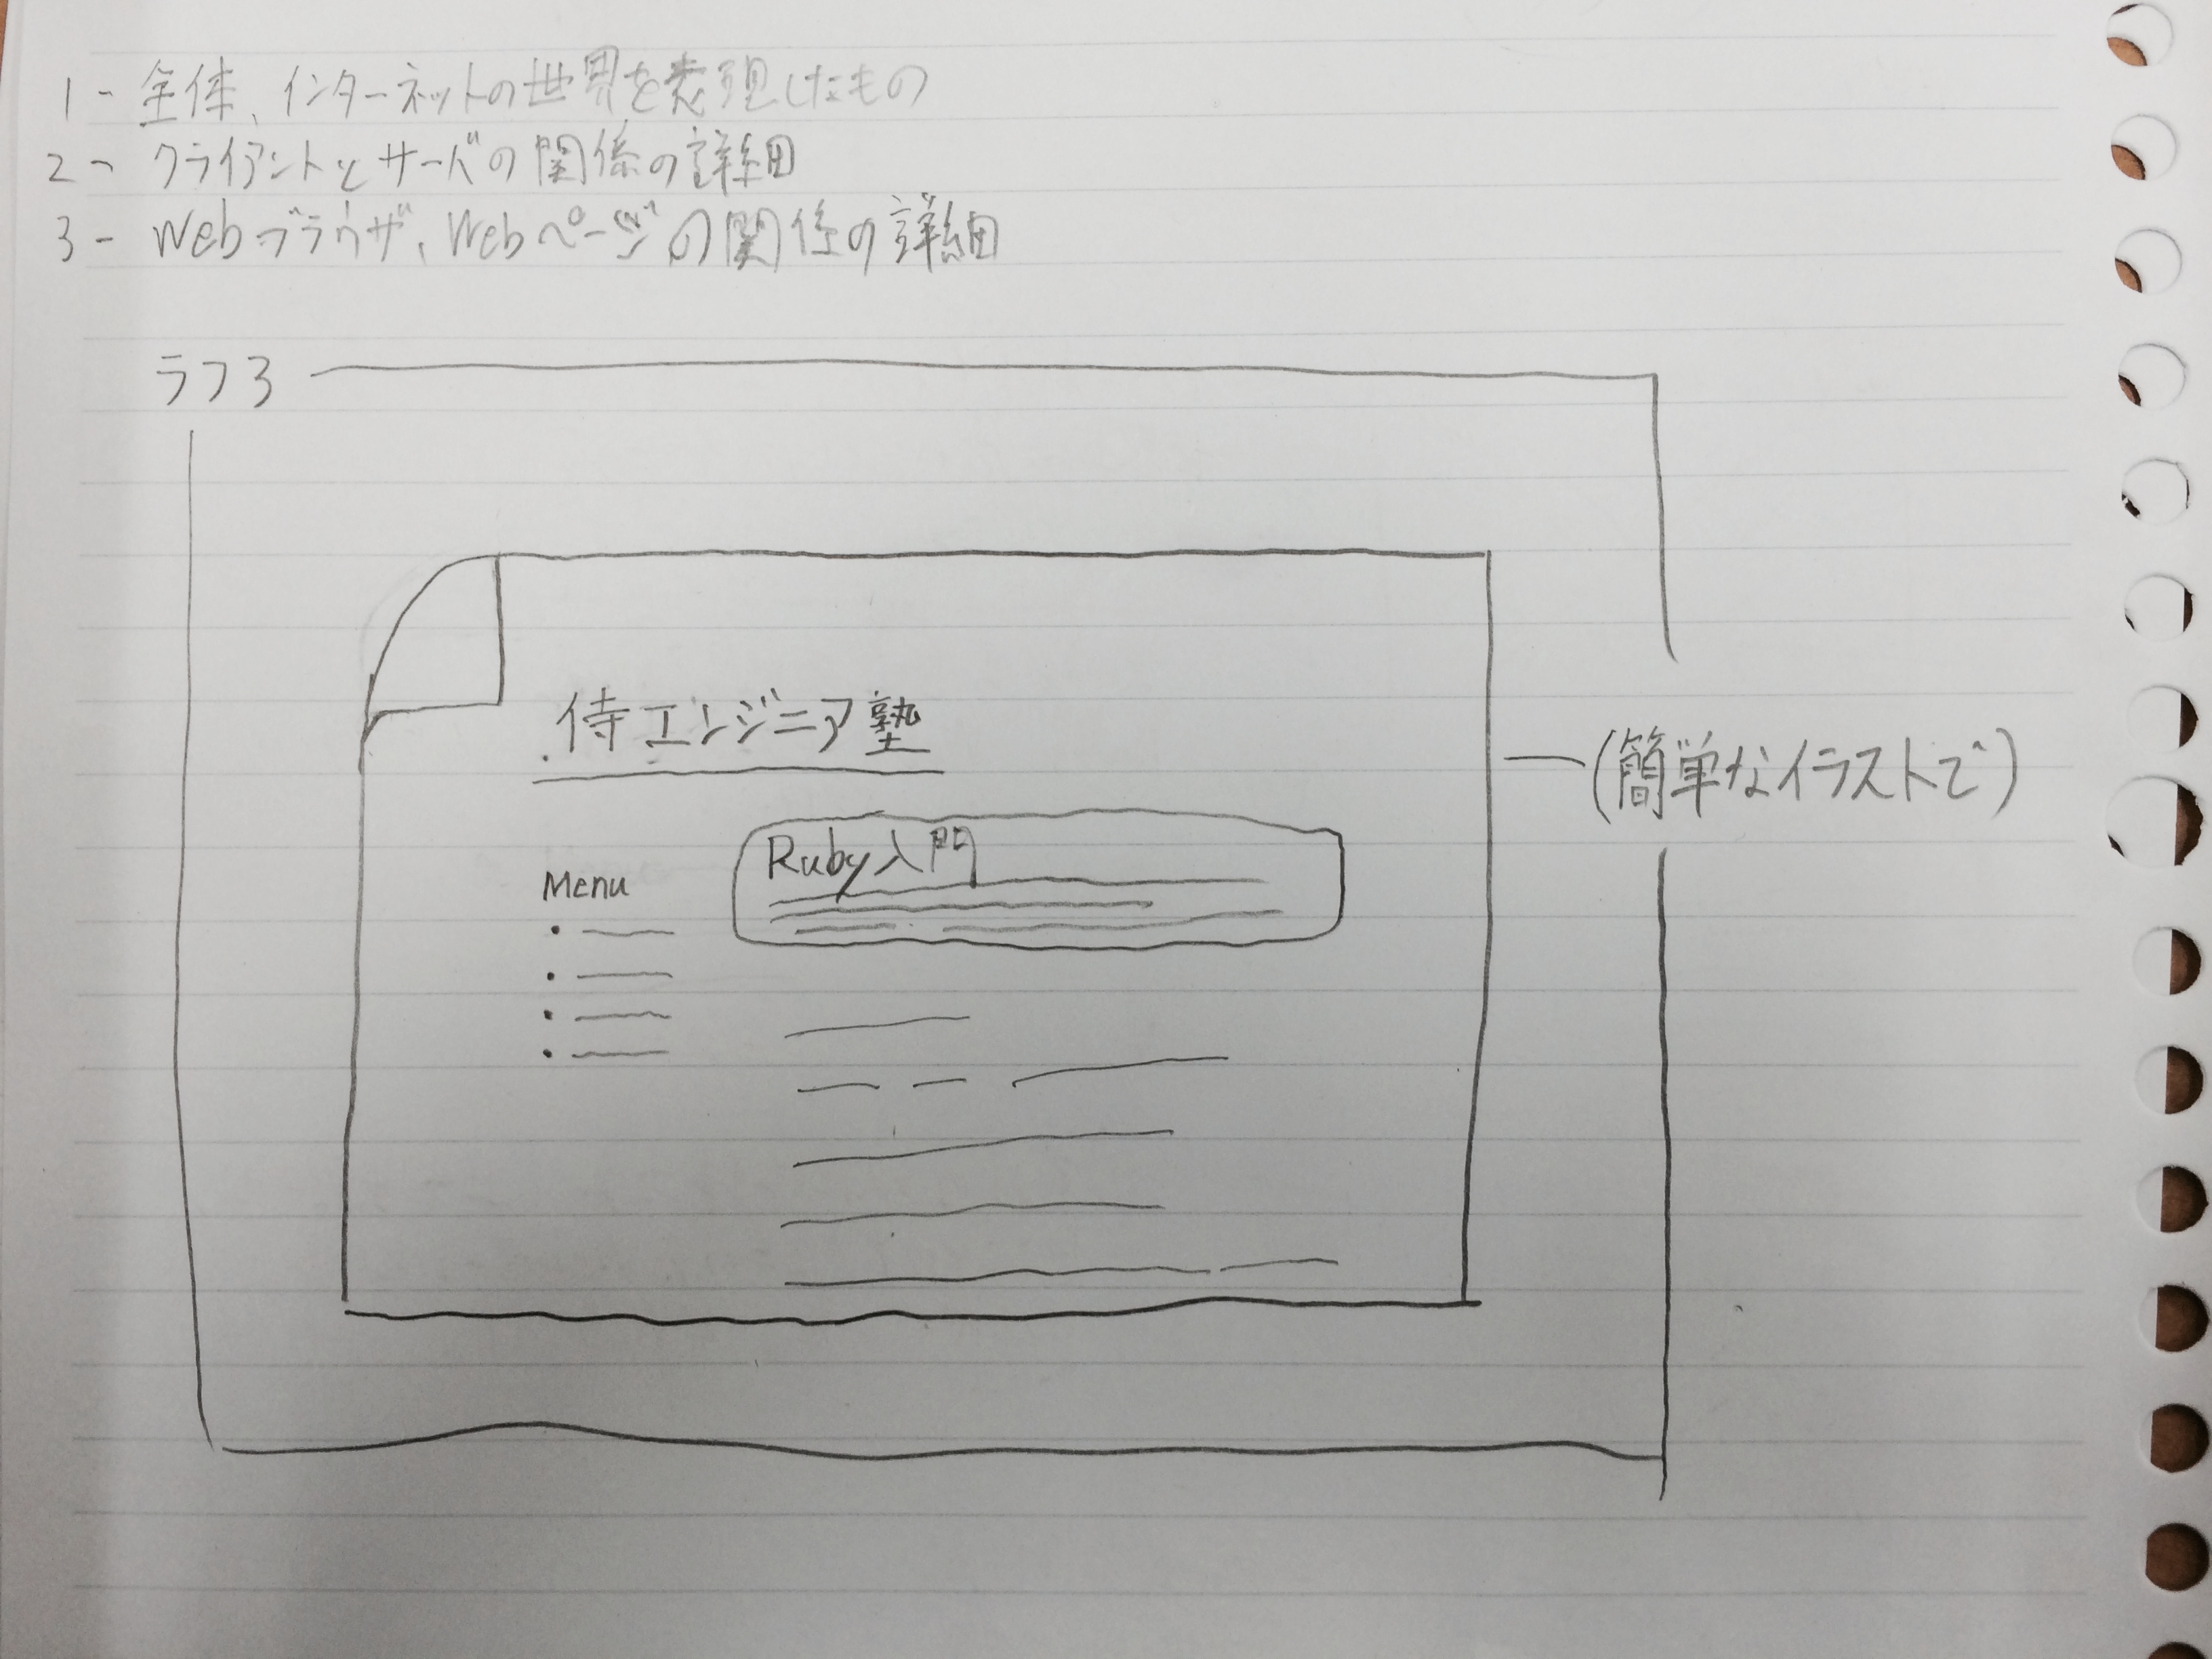 1- 全体、インターネットの世界を表現したもの
2- クライアントとサーバの関係の詳細
3- Webブラウザ、Webページの関係の詳細
ラフ3
侍エンジニア塾
(簡単なイラストで)
Ruby入門
Menu